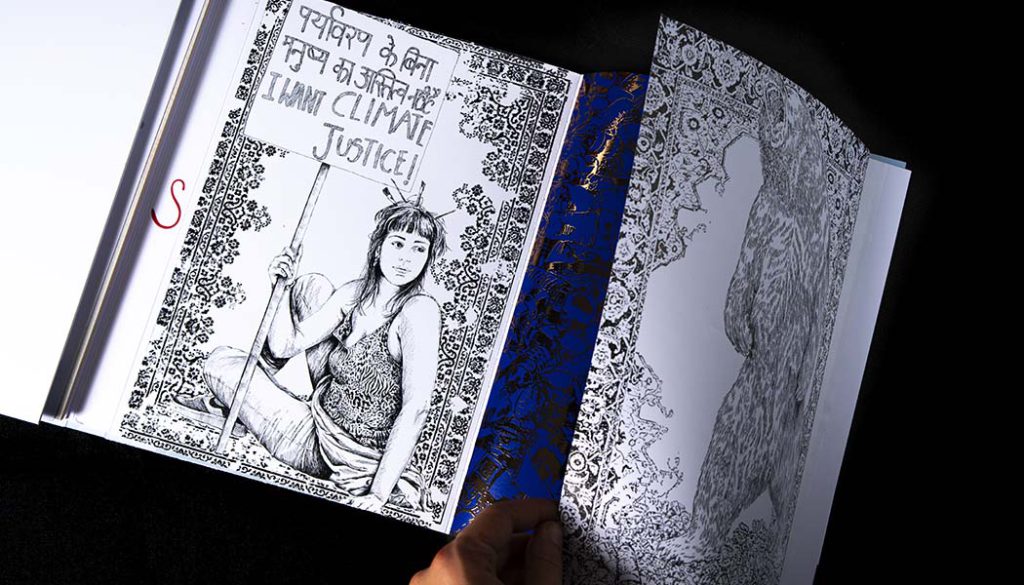 पर्यावरण के बिना
मनुष्य का अस्तित्व नहीं है
I WANT CLIMATE
JUSTICE!